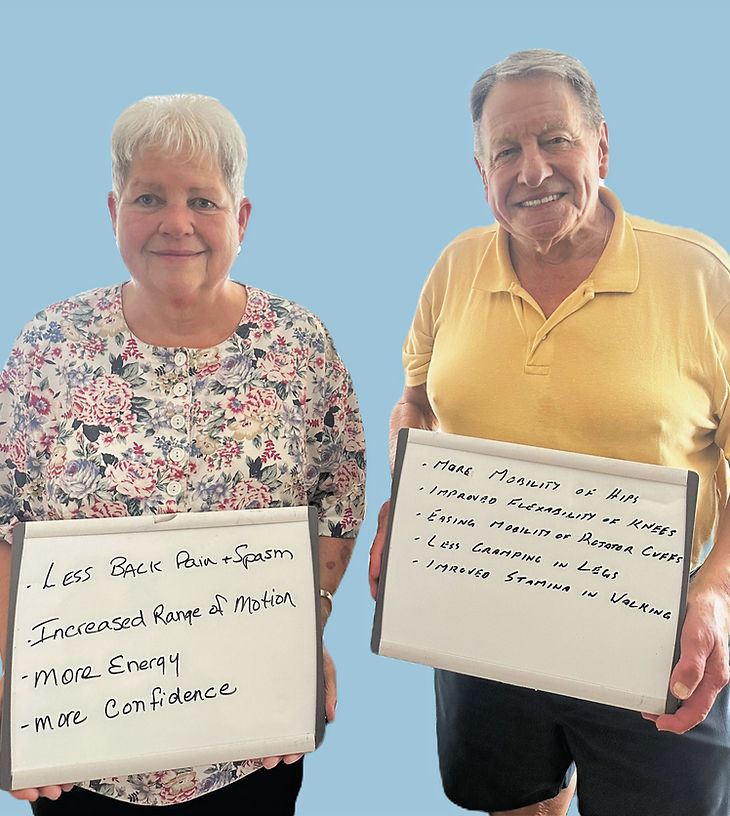 · Less Back Pain + Spasm
· Increased Range of Motion
- More Energy
- more Confidence
· More Mobility of Hips
· Improved Flexability of Knees
· Easing Mobility of Rotator Cuffs
· Less Cramping in Legs
· Improved Stamina in Walking